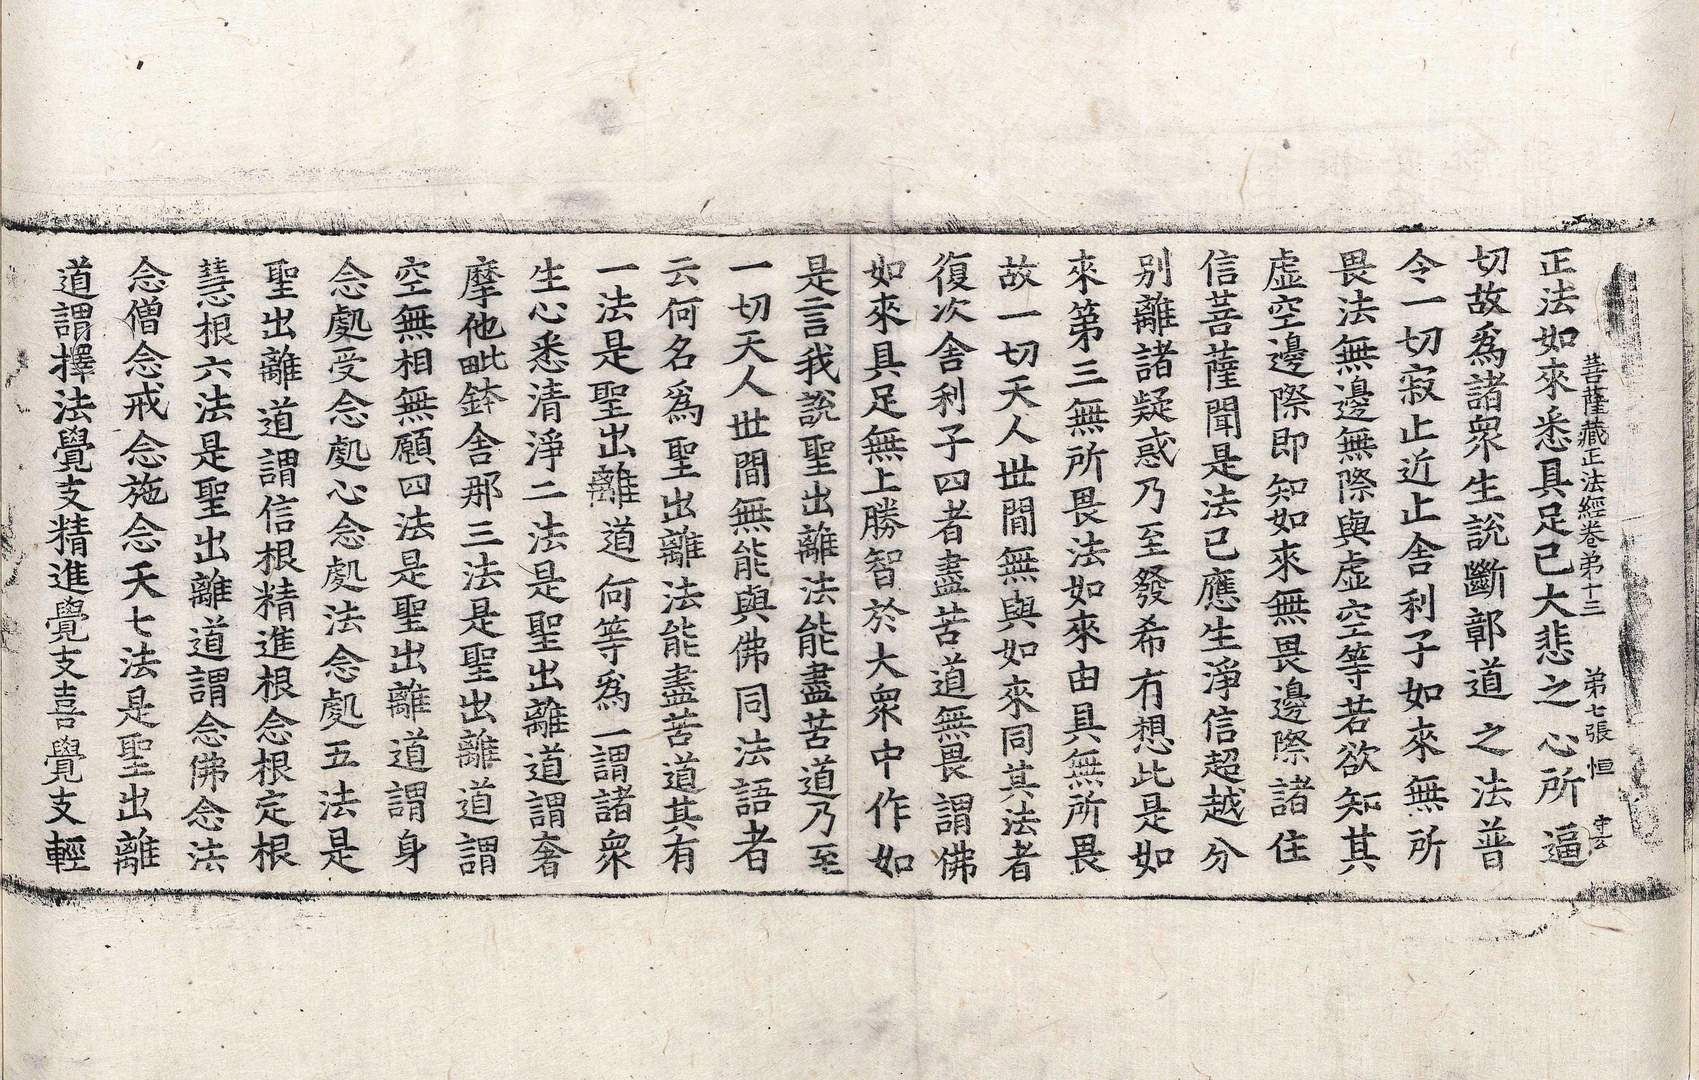 菩薩藏正法經卷弟十三　弟七張　恒
正法如來悉具足已大悲之心所逼
切故爲諸衆生說斷鄣道之法普
令一切寂止近止舍利子如來無所
畏法無邊無際與虛空等若欲知其
虛空邊際即知如來無畏邊際諸住
信菩薩聞是法已應生淨信超越分
別離諸疑惑乃至發希有想此是如
來第三無所畏法如來由具無所畏
故一切天人世間無與如來同其法者
復次舍利子四者盡苦道無畏謂佛
如來具足無上勝智於大衆中作如
是言我說聖出離法能盡苦道乃至
一切天人世間無能與佛同法語者
云何名爲聖出離法能盡苦道其有
一法是聖出離道何等爲一謂諸衆
生心悉清淨二法是聖出離道謂奢
摩他毗鉢舍那三法是聖出離道謂
空無相無願四法是聖出離道謂身
念處受念處心念處法念處五法是
聖出離道謂信根精進根念根定根
慧根六法是聖出離道謂念佛念法
念僧念戒念施念天七法是聖出離
道謂擇法覺支精進覺支喜覺支輕